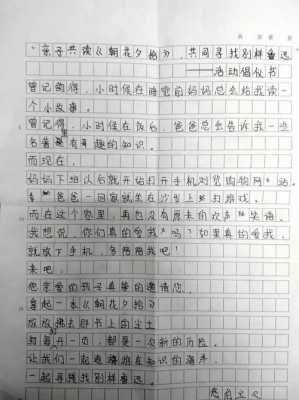 “亲子共读《朝花夕拾》，共同寻找别样鲁迅
——活动倡仪书
曾记得，小时候在睡觉前妈妈总会给我读一
个小故事。
曾记得，小时候在饭后，爸爸总会告诉我一些
名著里有趣的知识。
而现在，
妈妈下班以后就开始打开手机浏览购物网站
爸爸一回家就坐在沙发上打游戏。
而在这个家里，再也没有原来的欢声笑语。
我想说，你们真的爱我吗？如果真的爱我，
就放下手机，多陪陪我吧！
来吧，
您亲爱的孩子真挚的邀请您，
拿起一本《朝花夕拾》
拂去那书上的尘土
每一次都是一次新的历险。
让我们一起遨游在知识的海洋
一起寻找别样鲁迅。